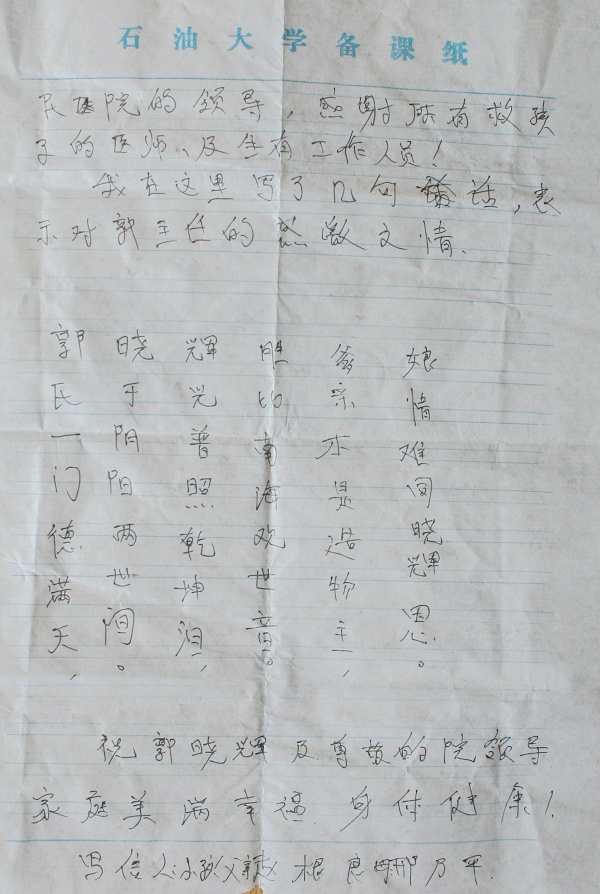 石油大学备课纸
民医院的领导，感谢所有救孩
子的医师、及全有工作人员！
我在这里写了几句话，表
示对郭主任的感激之情.
郭氏一门德满天，
晓于阴阳两世间。
辉光普照乾坤，
胜如南海观世音。
爹亲不是造物主，
娘情难同晓辉恩。
祝郭晓辉及尊敬的院领导
家庭美满幸福 身体健康！
写信人:小孩父 根良